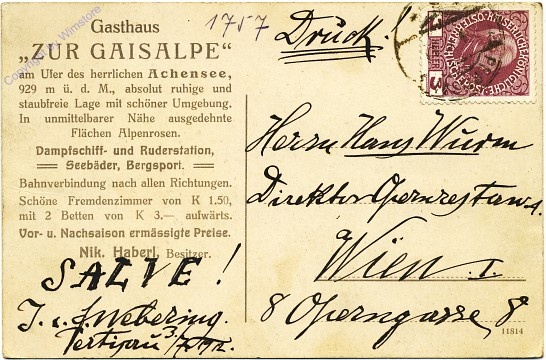 Gasthaus
„ZUR GAISALPE“
am Ufer des herrlichen Achensee,
929 m ü. d. M., absolut ruhige und
staubfreie Lage mit schöner Umgebung.
In unmittelbarer Nähe ausgedehnte
Flächen Alpenrosen.
Dampfschiff- und Ruderstation,
Seebäder, Bergsport.
Bahnverbindung nach allen Richtungen.
Schöne Fremdenzimmer von K 1.50,
mit 2 Betten von K 3.— aufwärts.
Vor- u. Nachsaison ermässigte Preise.
Nik. Haberl, Besitzer.
1757
SALVE!
Pertisau
Druck!
3 HELLER 3
Herrn Hans Wurm
Direktor Opernrestau.
Wien I.
8 Operngasse 8
11814